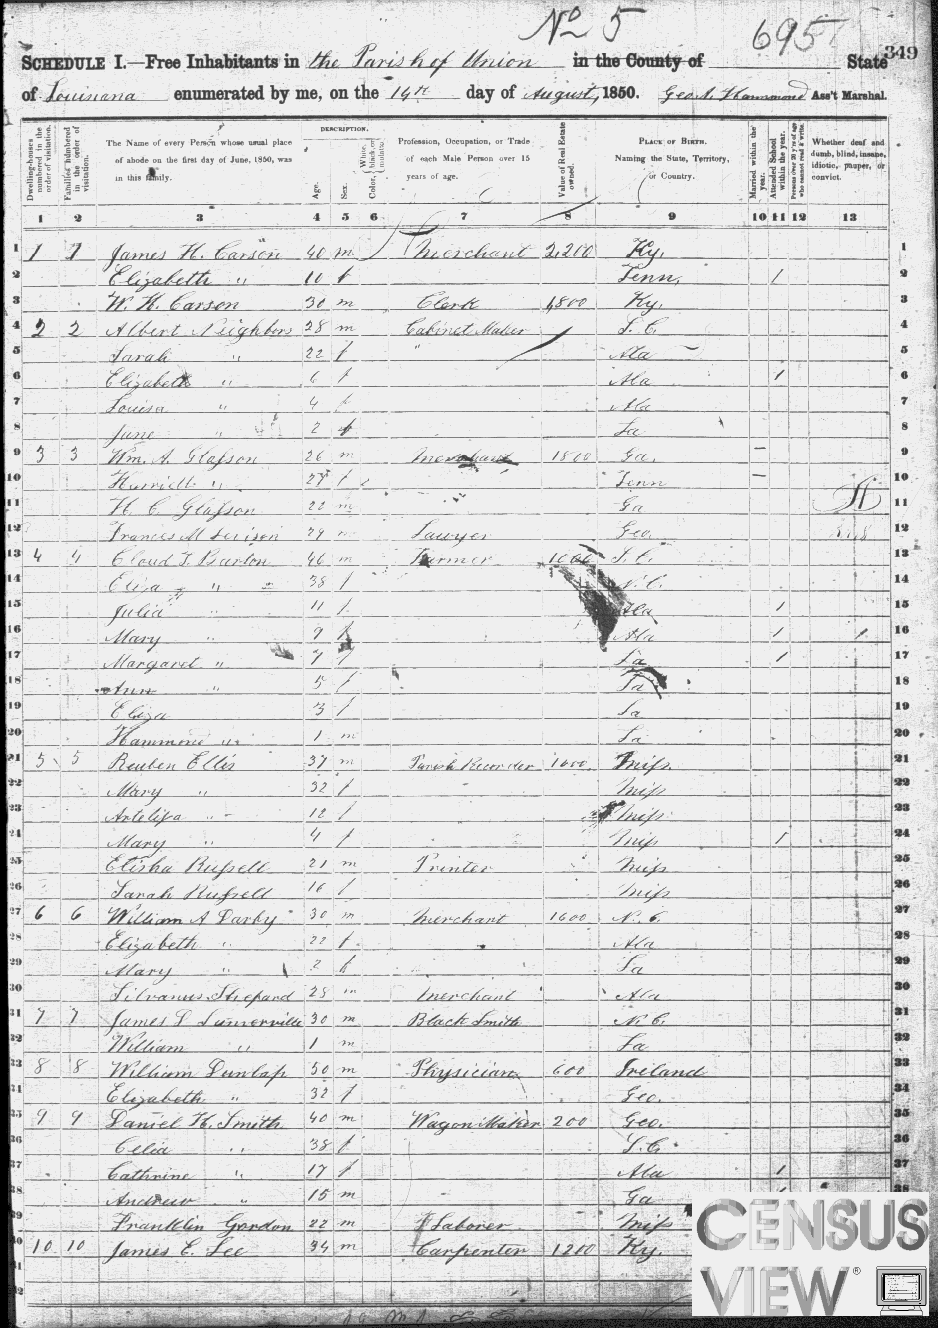 No 5
695
349
SCHEDULE I.—Free Inhabitants in the Parish of Union in the County of State
of Louisiana enumerated by me, on the 14th day of August, 1850. Geo. A. Hammond Ass't Marshal.
DESCRIPTION.
Dwelling-houses numbered in the order of visitation.
Families numbered in the order of visitation.
The Name of every Person whose usual place of abode on the first day of June, 1850, was in this family.
Age.
Sex.
Color, White, black, or mulatto.
Profession, Occupation, or Trade of each Male Person over 15 years of age.
Value of Real Estate owned.
PLACE OF BIRTH. Naming the State, Territory, or Country.
Married within the year.
Attended School within the year.
Persons over 20 y'rs of age who cannot read & write.
Whether deaf and dumb, blind, insane, idiotic, pauper, or convict.
1 2 3 4 5 6 7 8 9 10 11 12 13
1 1 1 James H. Carson 40 m Merchant 2,200 Ky. 1
2 Elizabeth " 10 f Tenn. 1 2
3 W. H. Carson 30 m Clerk 1,800 Ky. 3
4 2 2 Albert Neighbors 28 m Cabinet Maker S. C. 4
5 Sarah " 22 f " Ala 5
6 Elizabeth " 6 f Ala 1 6
7 Louisa " 4 f Ala 7
8 June " 2 f La 8
9 3 3 Wm. A. Glasson 26 m Merchant 1800 Ga. 9
10 Harriett " 27 f Tenn 10
11 H. C. Glasson 22 m Ga 11
12 Frances M 29 m Lawyer Geo. 12
13 4 4 Cloud T. Barton 46 m Farmer 1000 S. C. 13
14 Eliza " 38 f N. C. 14
15 Julia " 11 f Ala 1 15
16 Mary " 9 f Ala 1 16
17 Margaret " 7 f La 1 17
18 Ann " 5 f La 18
19 Eliza 3 f La 19
20 Hammond " 1 m La 20
21 5 5 Reuben Ellis 37 m Parish Recorder 1600 Miss. 21
22 Mary " 32 f Miss 22
23 Artelissa " 12 f Miss 23
24 Mary " 4 f Miss 1 24
25 Elisha Russell 21 m Printer Miss 25
26 Sarah Russell 16 f Miss 26
27 6 6 William A Darby 30 m Merchant 1600 N. C. 27
28 Elizabeth " 22 f Ala 28
29 Mary " 2 f La 29
30 Silvanus Shepard 28 m Merchant Ala 30
31 7 7 James L Sumerville 30 m Black Smith N. C. 31
32 William " 1 m La 32
33 8 8 William Dunlap 50 m Physician 600 Ireland 33
34 Elizabeth " 32 f Geo. 34
35 9 9 Daniel H. Smith 40 m Wagon Maker 200 Geo. 35
36 Celia " 38 f S. C. 36
37 Cathrine " 17 f Ala 1 37
38 Andrew " 15 m Ga 38
39 Franklin Gordon 22 m Laborer Miss
40 10 10 James E. Lee 34 m Carpenter 1200 Ky.
41
42
CENSUS
VIEW®